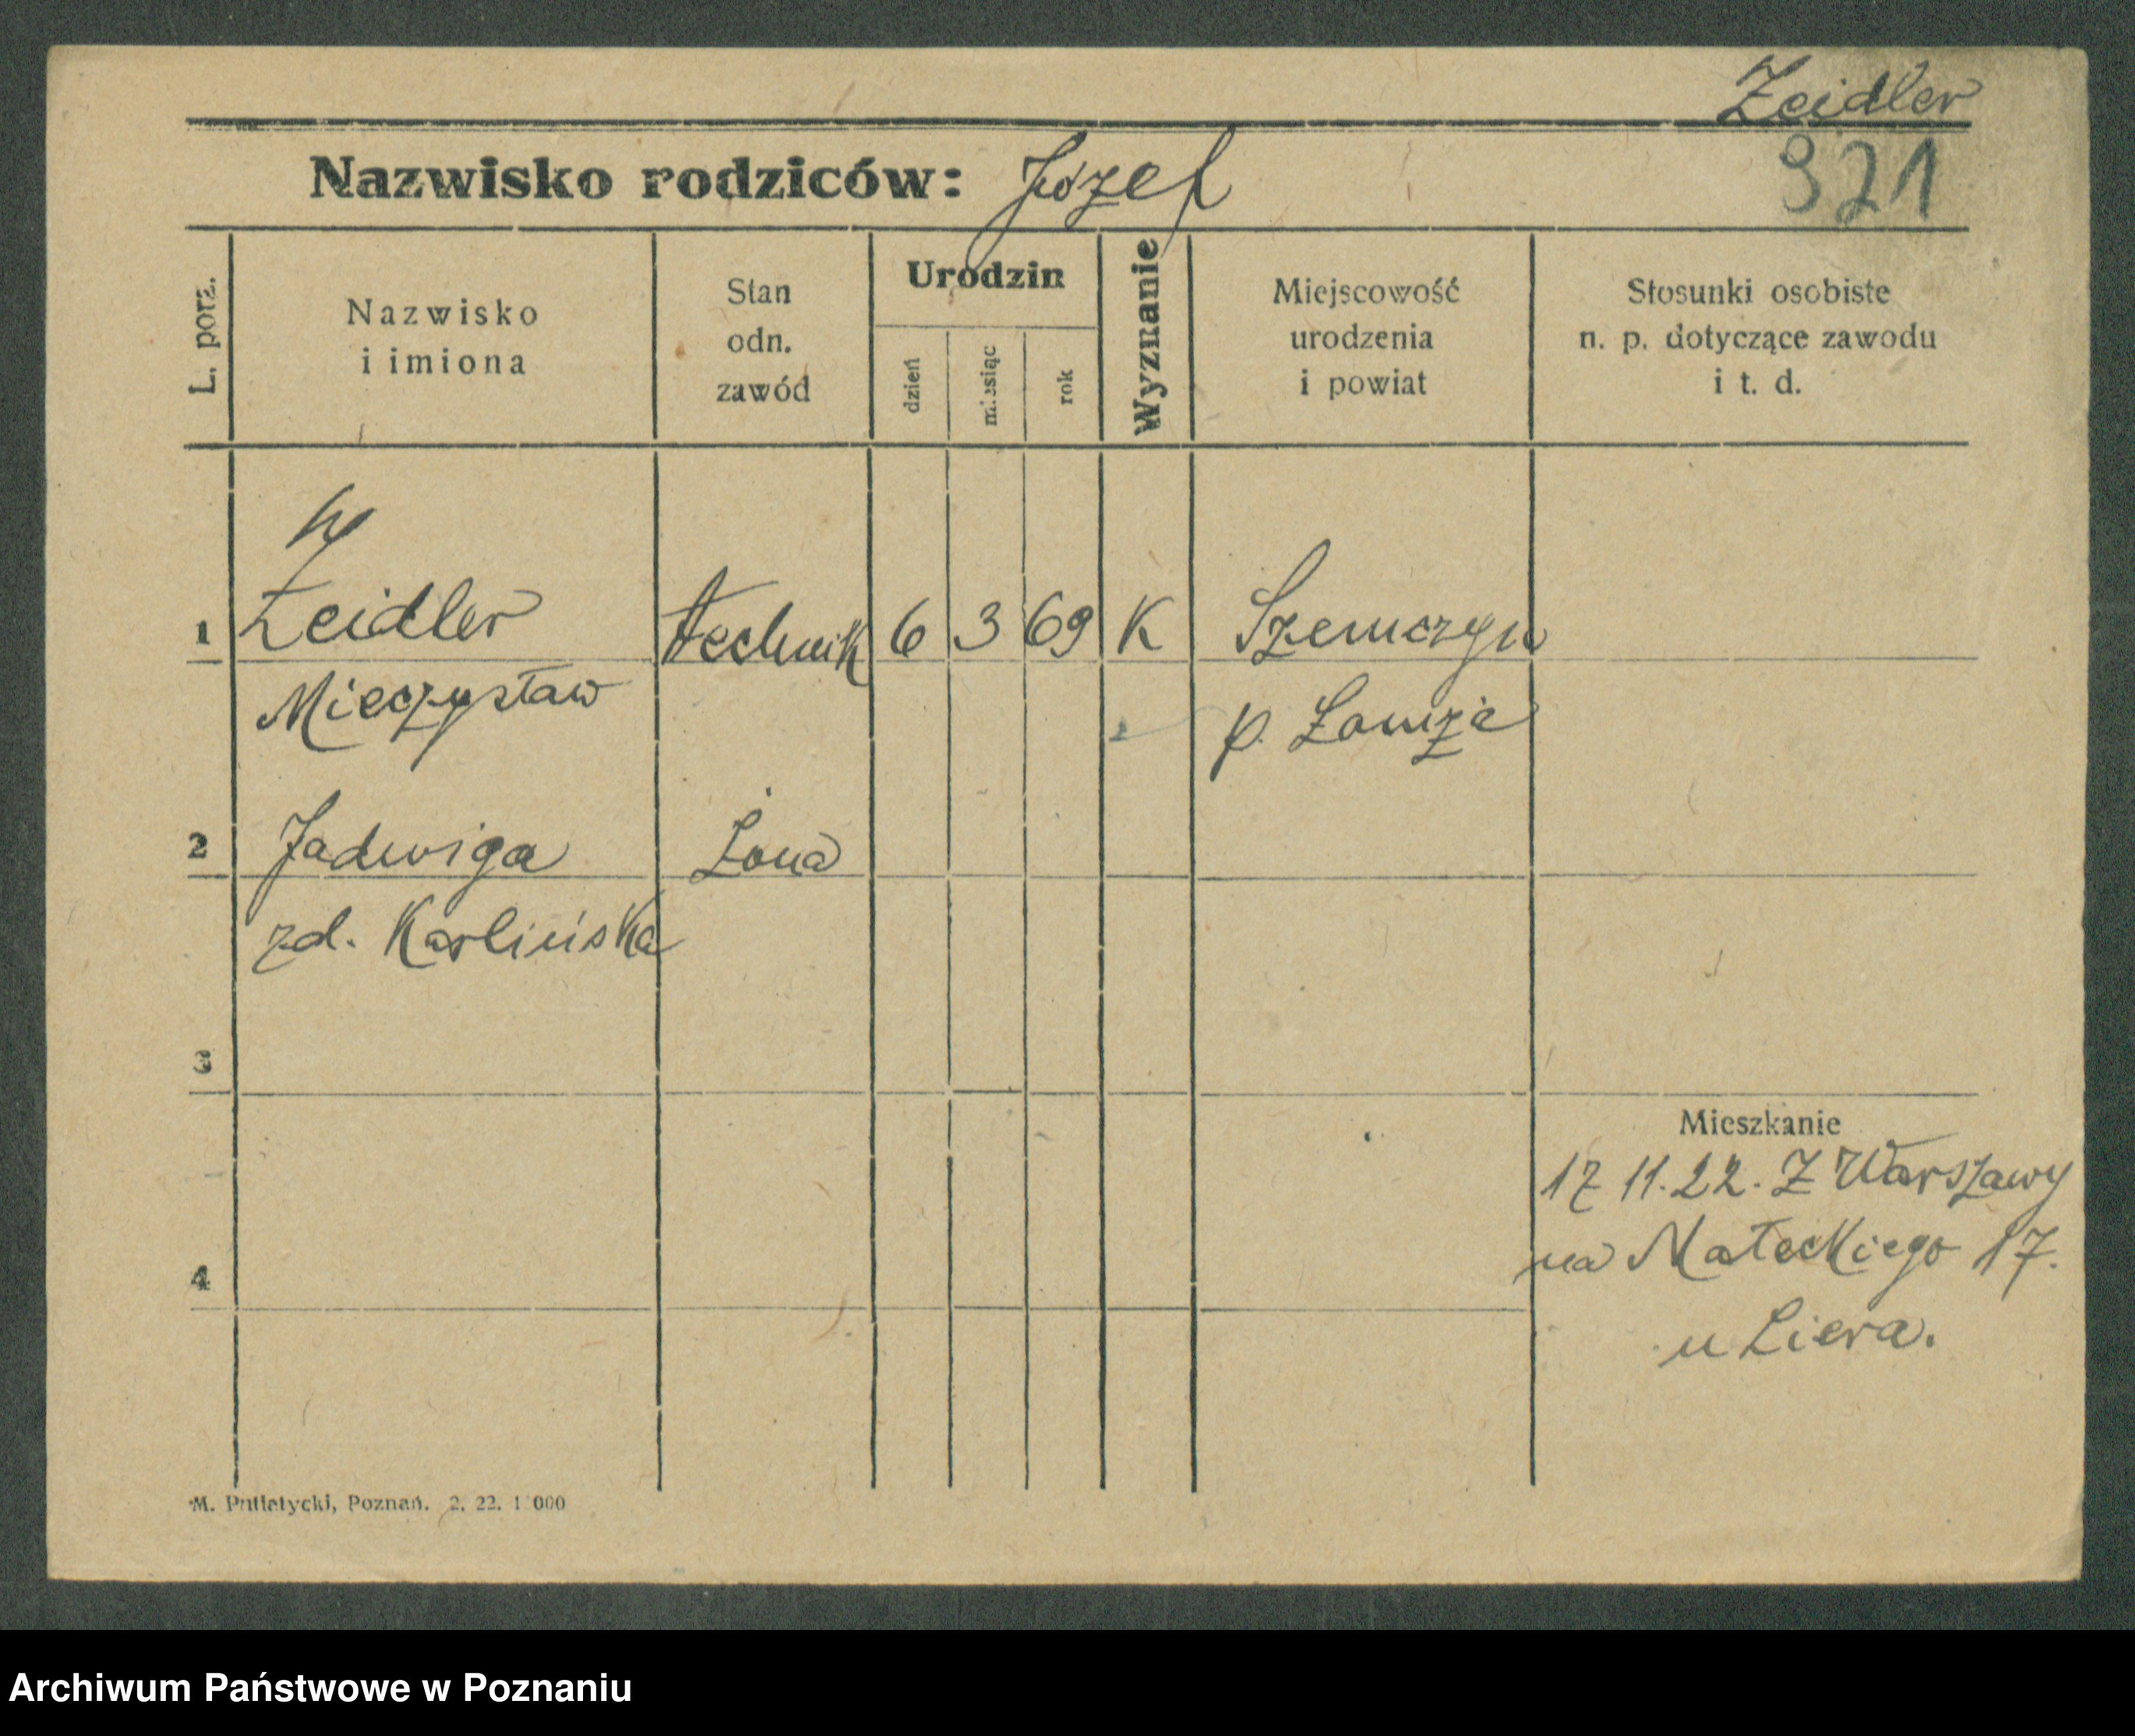 Zeidler
Nazwisko rodziców: Józef
921
L. porz.
Nazwisko
i imiona
Stan
odn.
zawód
Urodzin
dzień
miesiąc
rok
Wyznanie
Miejscowość
urodzenia
i powiat
Stosunki osobiste
n. p. dotyczące zawodu
i t. d.
1 Zeidler technik 6 3 69 K Szemczyn
Mieczysław p. Łomża
2 Jadwiga Żona
zd. Karlińska
3
Mieszkanie
17 11.22. Z Warszawy
na Małeckiego 17.
4
u Liera.
M. Putiatycki, Poznań. 2. 22. 1 000
Archiwum Państwowe w Poznaniu